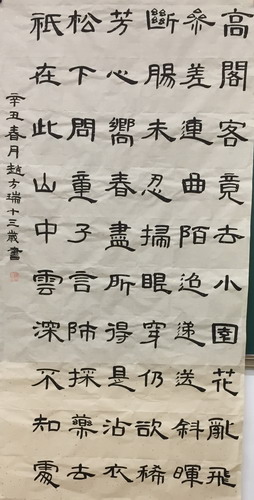 高閣客竟去小園花亂飛
參差連曲陌迢遞送斜暉
斷腸未忍掃眼穿仍欲稀
芳心嚮春盡所得是沾衣
松下問童子言師採藥去
祇在此山中雲深不知處
辛丑春月趙方瑞十三歲書